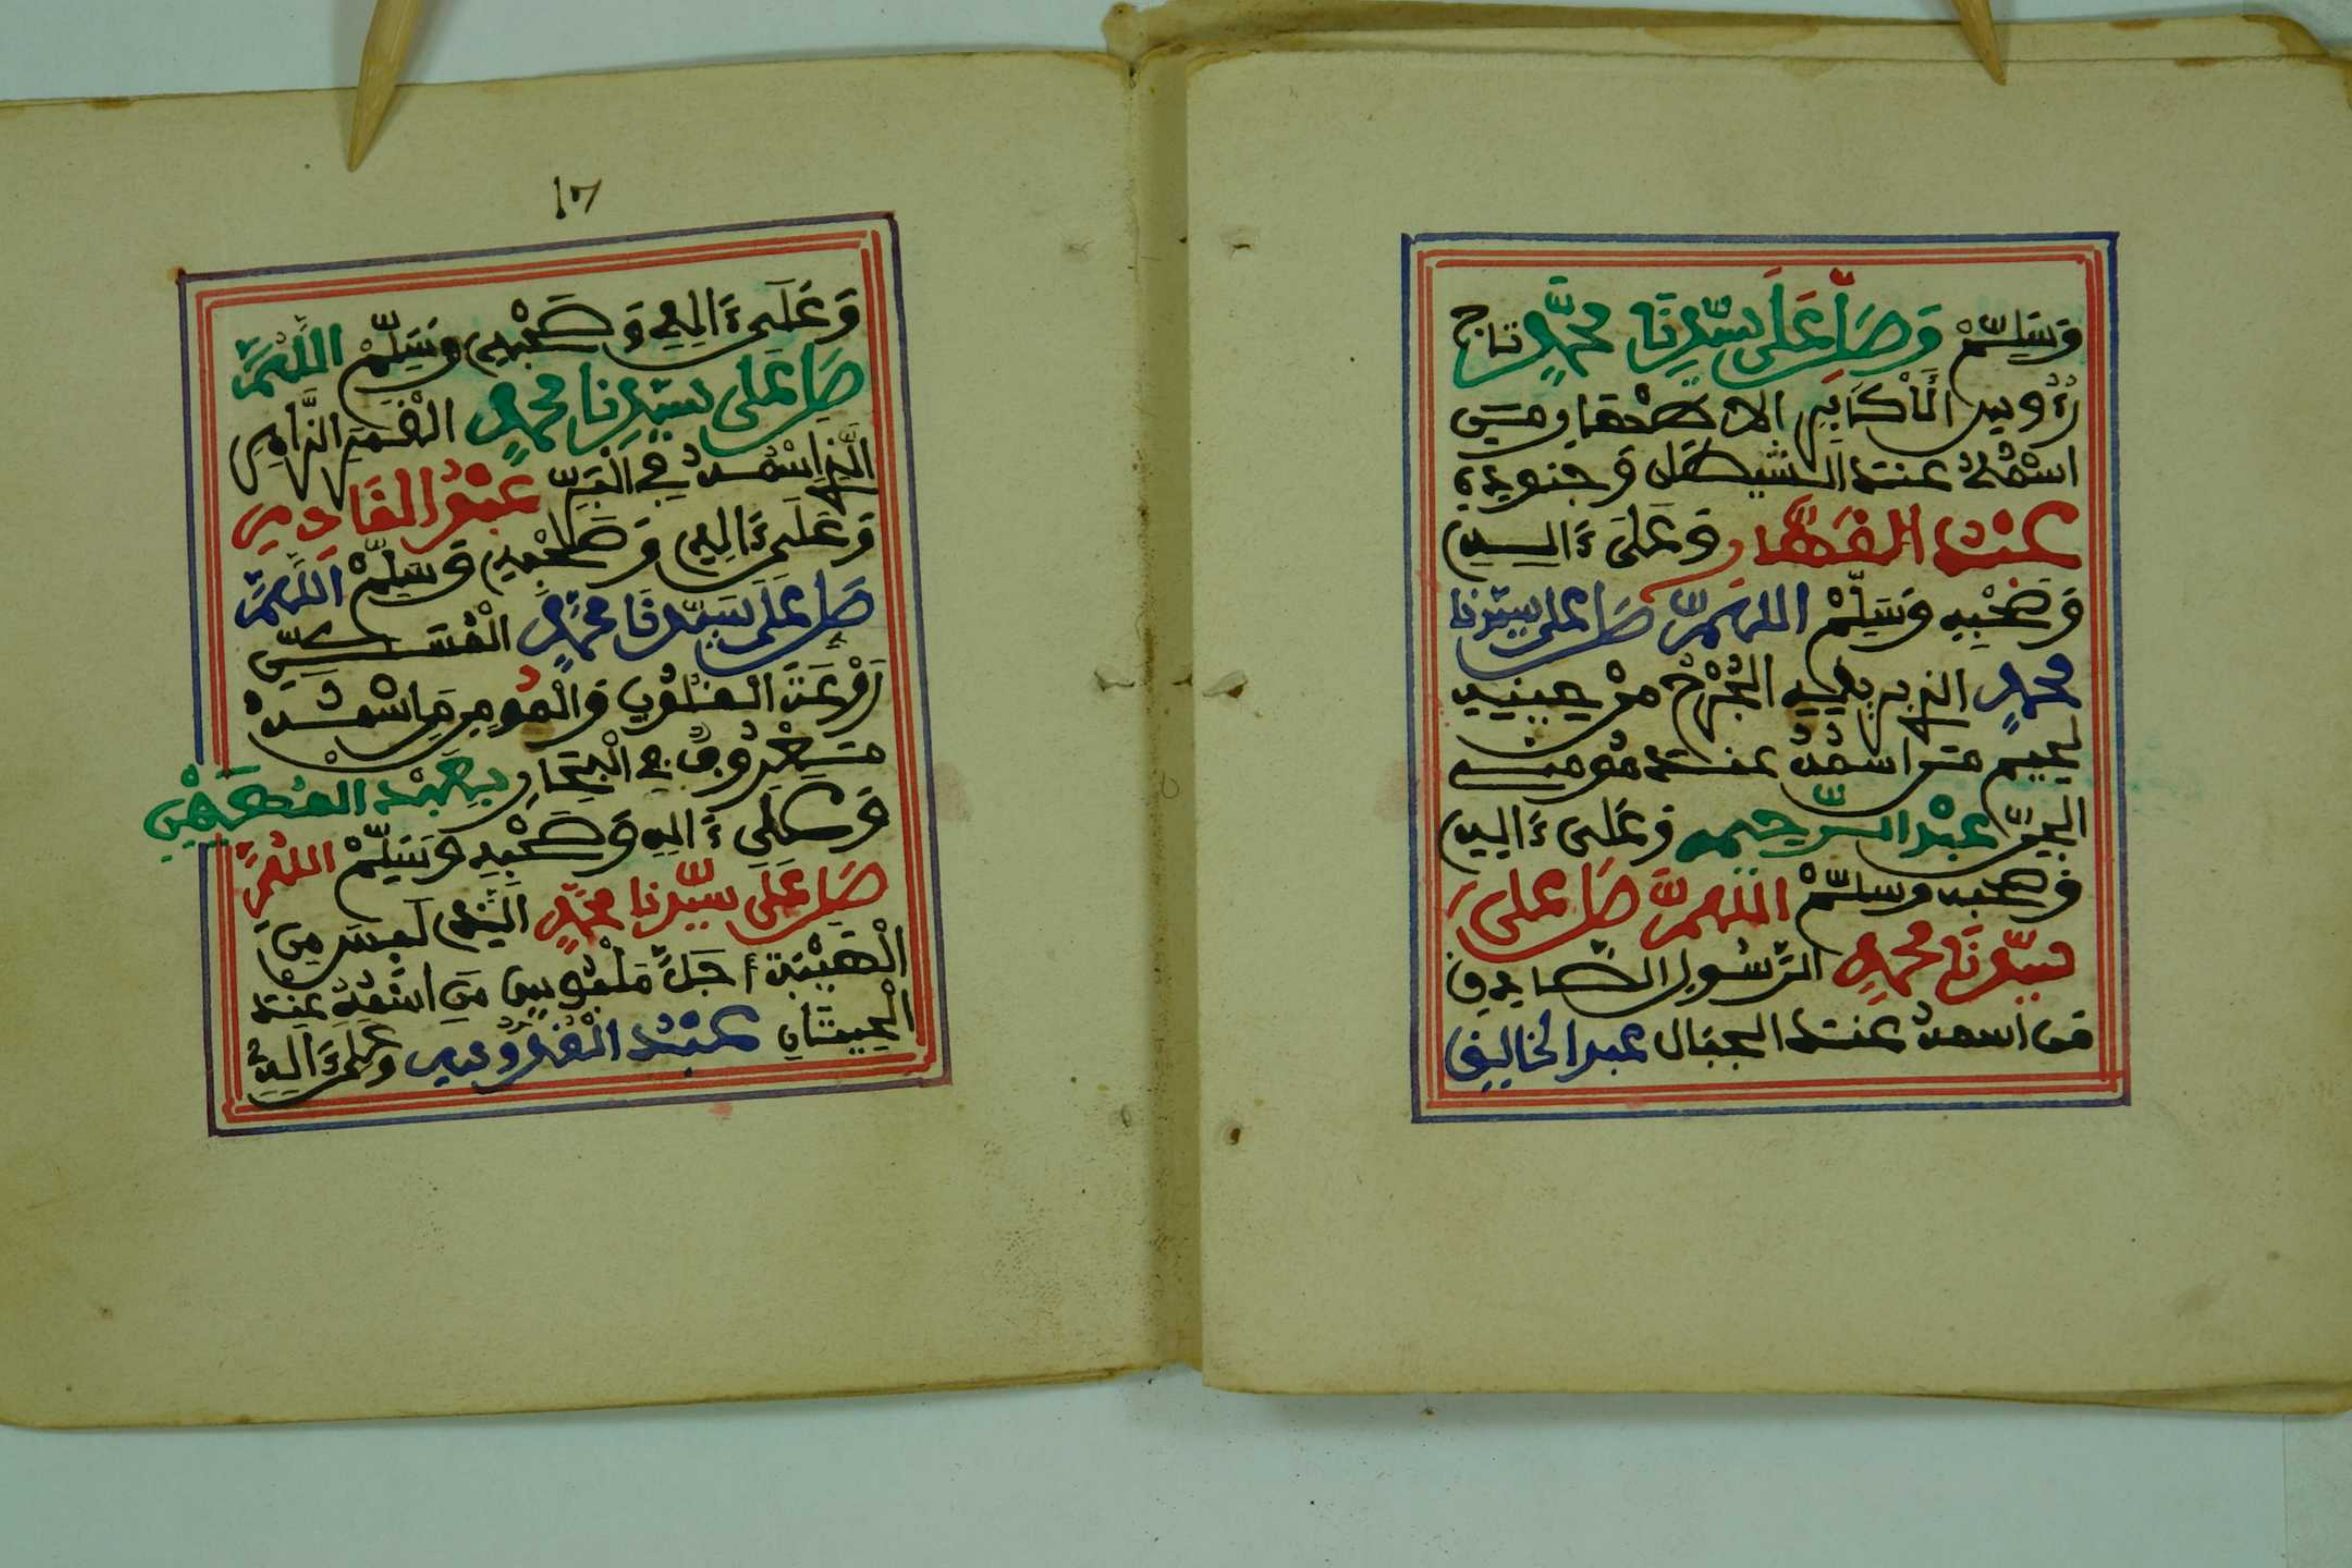 وَسَلِّمْ وَصَلِّ عَلَى سَيِّدِنَا مُحَمَّدٍ تاج
رُءُوسِ الْأَكَابِرِ الاصْطِفَا مَن
اسْمُهُ عند الشيطان وجنوده
عبد القهار وَعَلَى ءَالِهِ
وَصَحْبِهِ وَسَلِّمْ اللهمَّ صَلِّ على سيّدنا
محمدٍ الذي الْجُرْحُ مِنْ حِينِهِ
مَن اسمُهُ عند
الجِنِّ عبْد الرّحيم وَعَلى ءَالِهِ
وَصحبه وسلّمْ اللهمَّ صَلِّ على
سيّدنَا محمدٍ الرّسُولِ الصَّادِقِ
مَن اسمهُ عند الجبال عبد الخالِقِ
١٧
وَعَلَى ءَالِهِ وَصَحْبِهِ وَسَلِّمْ اللَّهُمَّ
صَلِّ عَلَى سيّدِنا محمدٍ الْقَمَرِ الزَّاهِرِ
الَّذِي اسْمُهُ فِي الْبَرِّ عَبْدُ القَادِرِ
وَعَلَى ءَالِهِ وَصَحْبِهِ وَسَلِّمْ اللَّهُمَّ
صَلِّ عَلَى سَيِّدِنَا مُحَمَّدٍ الْمُسَكِّنِ
رَوْعَةَ الْمَلْهُوفِ وَالْمُومِنِ مَن اسْمُهُ
مَعْرُوفٌ في الْبِحَارِ بِعَبْدِ المُهَيْمِنِ
وَعَلَى ءَالِهِ وَصَحْبِهِ وَسَلِّمْ اللهُمَّ
صَلِّ عَلَى سَيِّدِنا مُحَمَّدٍ الَّذِي لَبِسَ مِنَ
الْهَيْبَةِ أَجَلَّ مَلْبُوسٍ مَنِ اسْمُهُ عِنْدَ
الْحِيتَانِ عَبْدُ الْقُدُّوسِ وَعَلَى ءَالِهِ